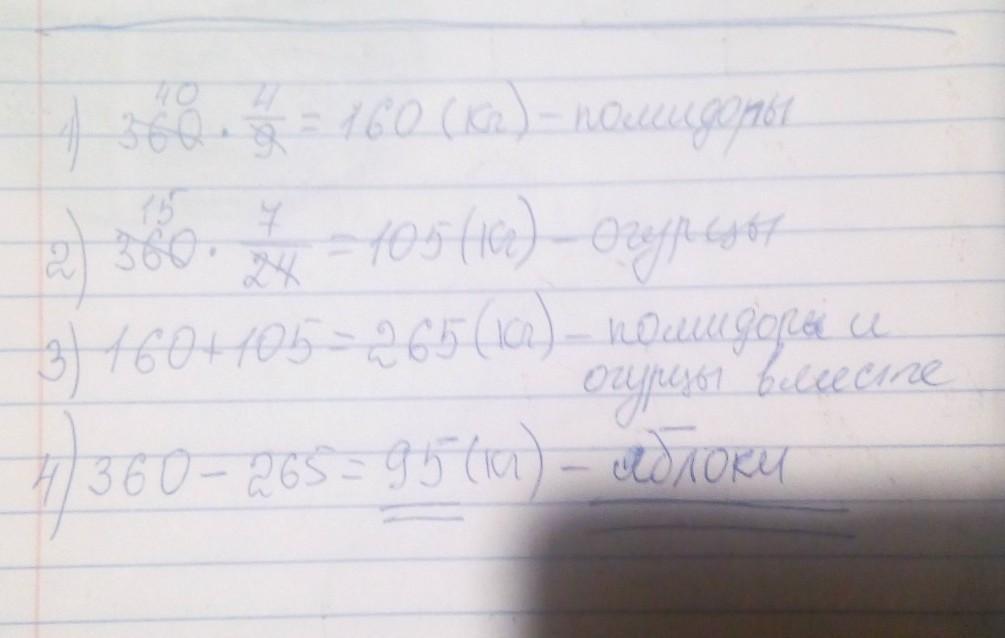 40 4
1) 360 · 4/9 = 160 (кг) – помидоры
15
2) 360 · 7/24 = 105 (кг) – огурцы
3) 160 + 105 = 265 (кг) – помидоры и
огурцы вместе
4) 360 – 265 = 95 (кг) – яблоки